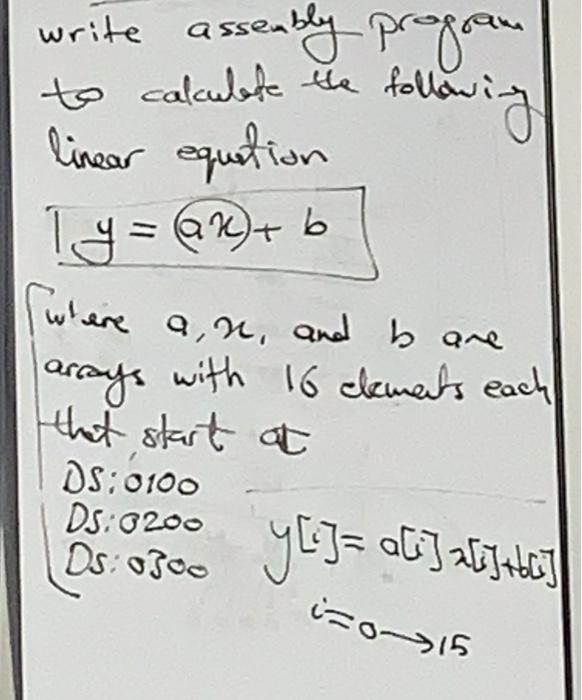 write assembly program
to calculate the following
linear equation
y = (ax) + b
where a, x, and b are
arrays with 16 elements each
that start at
DS:0100
DS:0200
DS:0300
y[i] = a[i] x[i] + b[i]
i=0→15